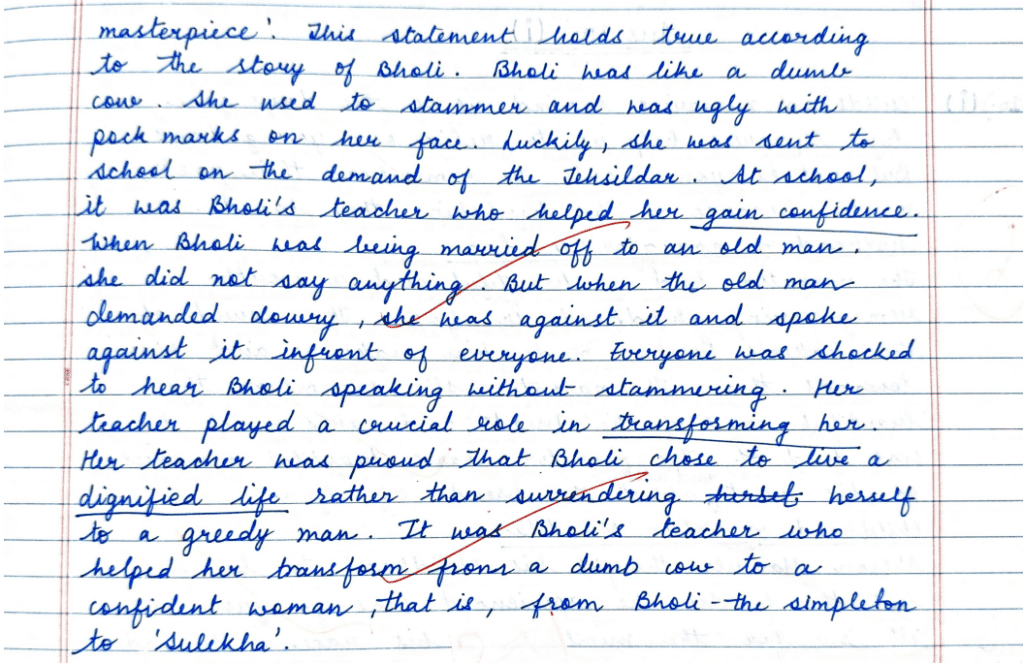 masterpiece'. This statement holds true according
to the story of Bholi. Bholi was like a dumb
cow. She used to stammer and was ugly with
pock marks on her face. Luckily, she was sent to
school on the demand of the Tehsildar. At school,
it was Bholi's teacher who helped her gain confidence.
When Bholi was being married off to an old man,
she did not say anything. But when the old man
demanded dowery, she was against it and spoke
against it infront of everyone. Everyone was shocked
to hear Bholi speaking without stammering. Her
teacher played a crucial role in transforming her.
Her teacher was proud that Bholi chose to live a
dignified life rather than surrendering herself
to a greedy man. It was Bholi's teacher who
helped her transform from a dumb cow to a
confident woman, that is, from Bholi - the simpleton
to 'Sulekha'.